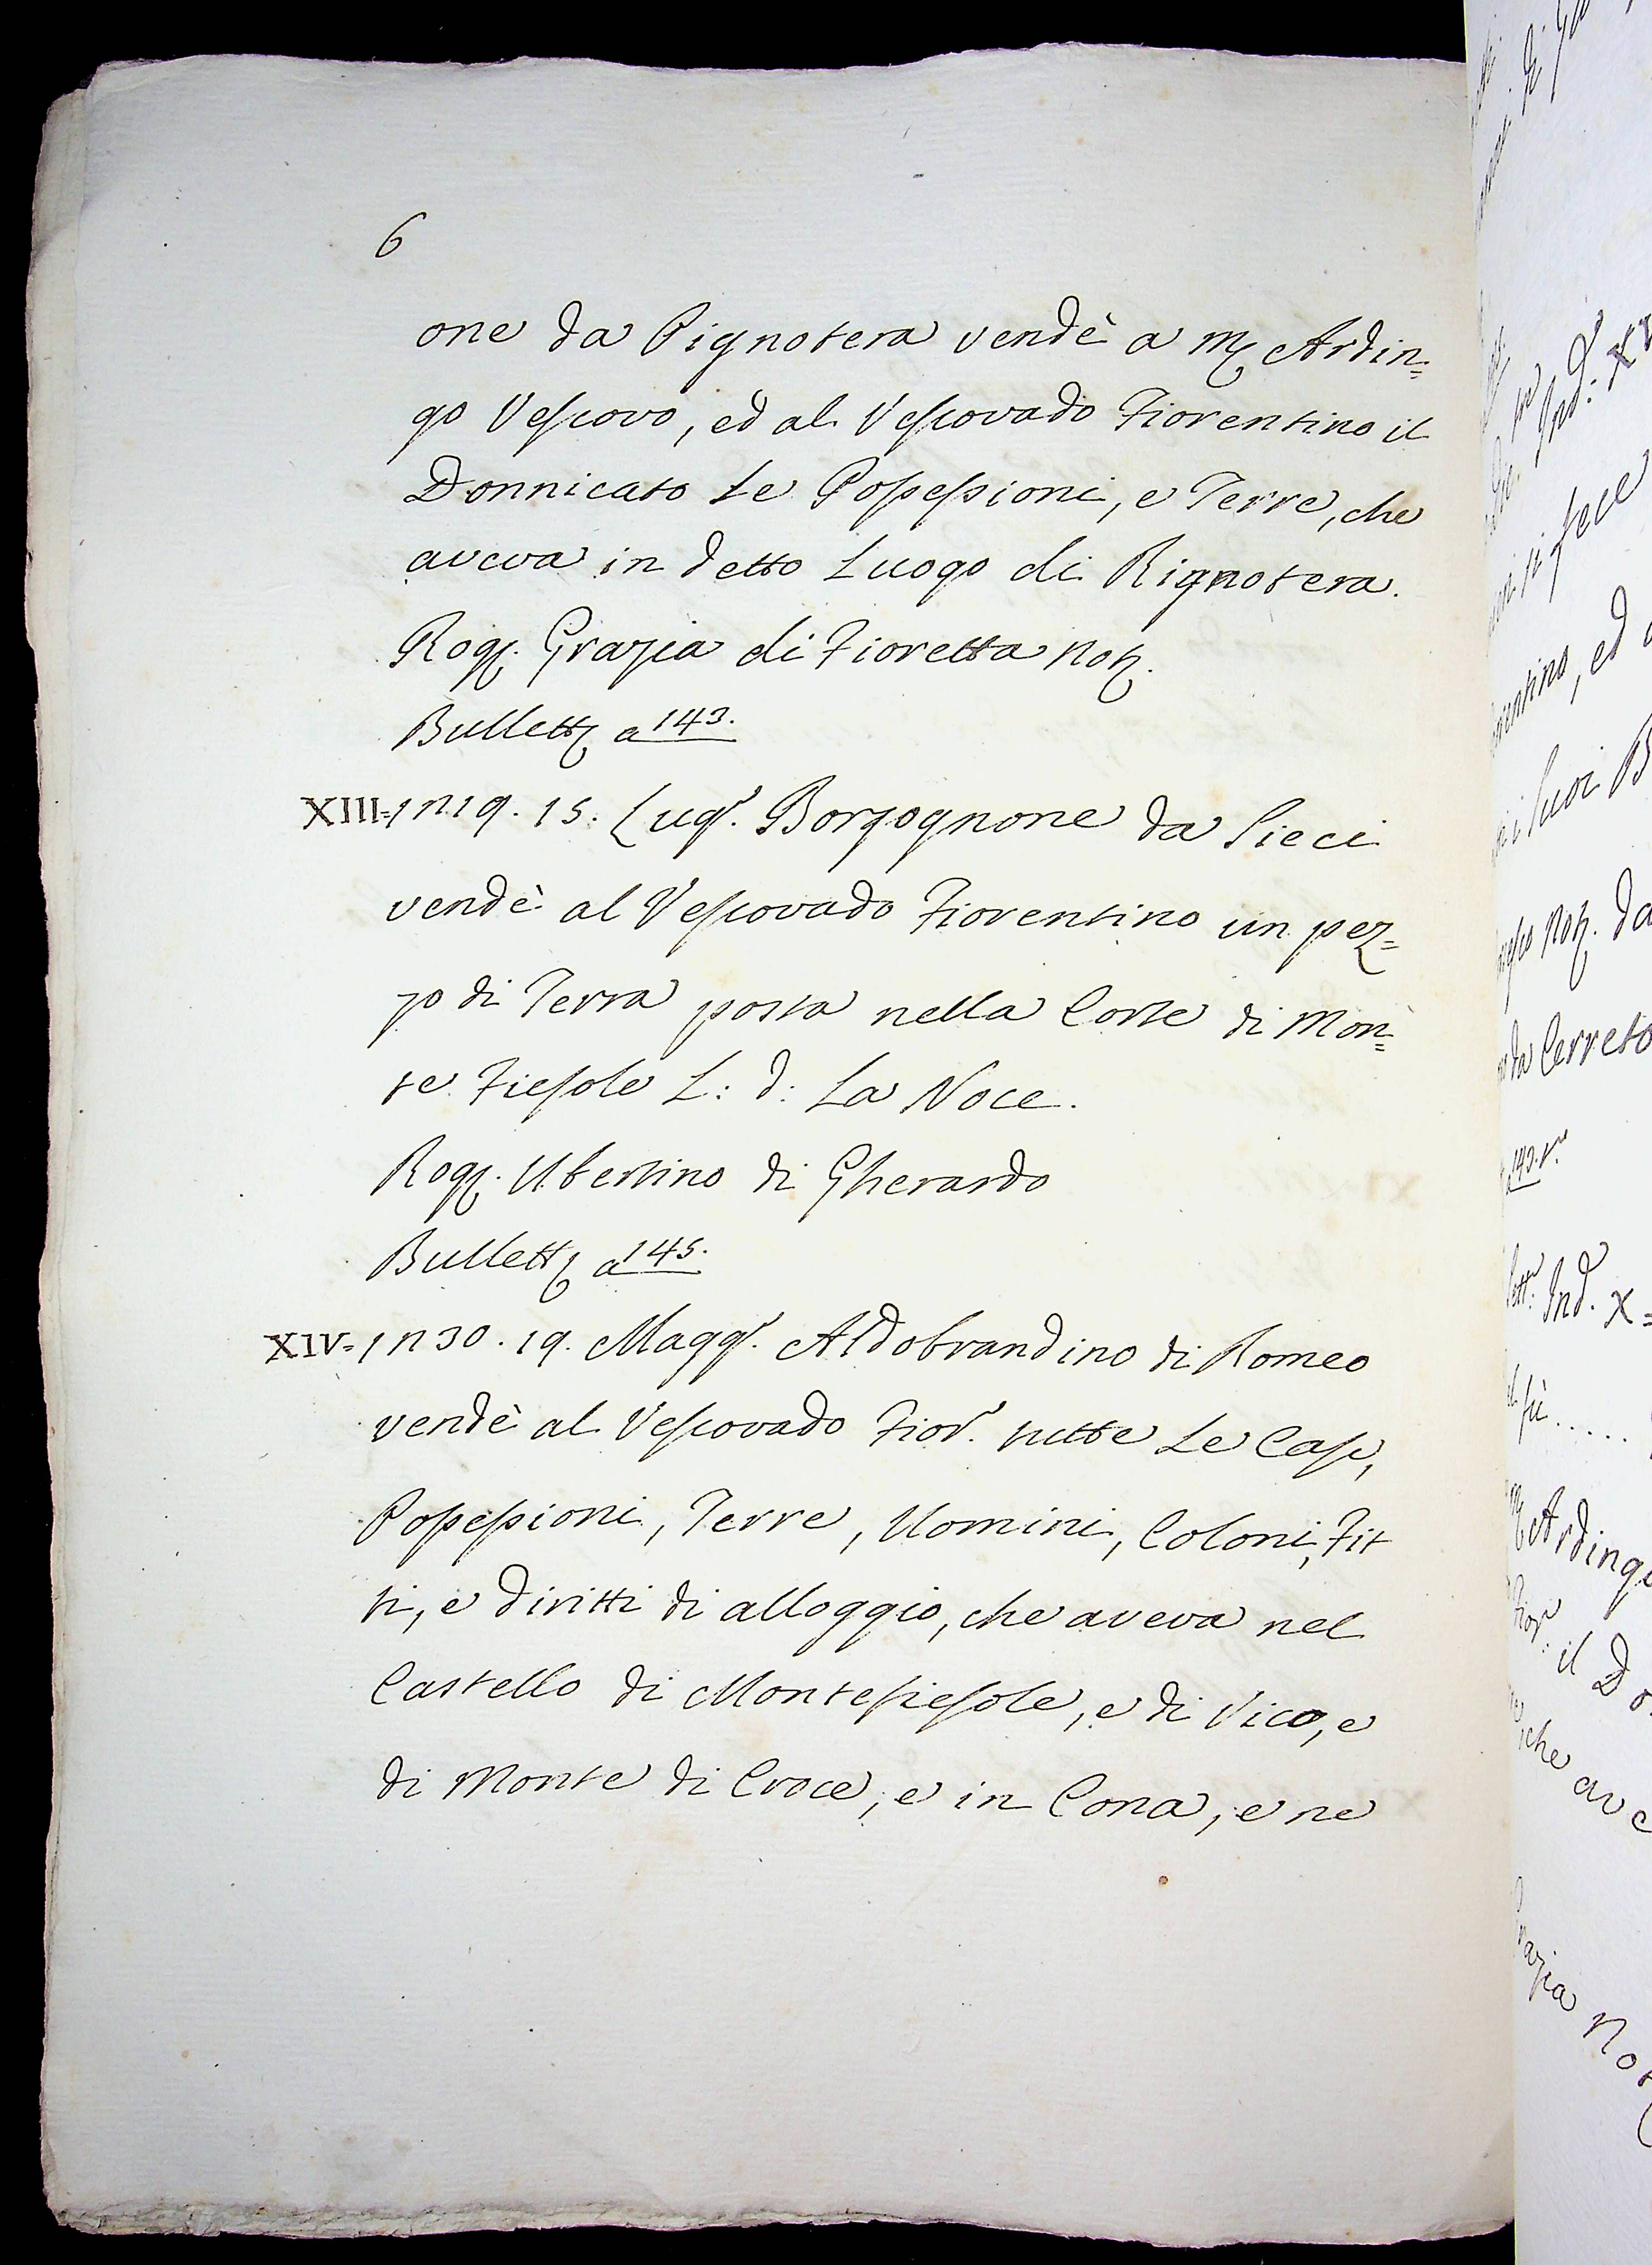 6
one da Rignotera vendè a M. Ardin=
go Vescovo, ed al Vescovado Fiorentino il
Donnicato Le Possessioni, e Terre, che
aveva in detto Luogo di Rignotera.
Rog. Grazia di Fioretta Not.
Bullett. a 143.
XIII= 1219. 15. Lug. Borgognone da Sieci
vendè al Vescovado Fiorentino un pez=
zo di Terra posta nella Corte di Mon=
te Fiesole L: d: La Noce.
Rog. Ubertino di Gherardo
Bullett. a 145.
XIV= 1230. 19. Magg. Aldobrandino di Romeo
vendè al Vescovado Fior. tutte Le Case,
Possessioni, Terre, Uomini, Coloni, Fit
ti, e diritti di alloggio, che aveva nel
Castello di Montefiesole, e di Vico, e
di Monte di Croce, e in Cona, e ne